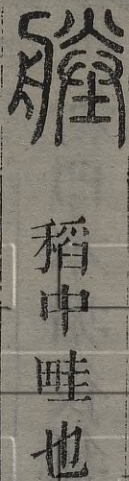 塍稻中畦也